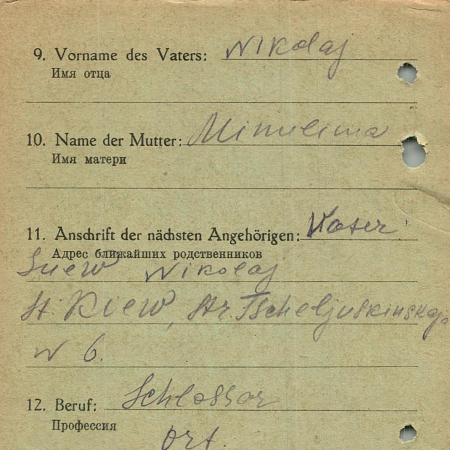 9. Vorname des Vaters: Nikolaj
Имя отца
10. Name der Mutter:
Имя матери
11. Anschrift der nächsten Angehörigen: Vater
Адрес ближайших родственников
Nikolaj
St. Kiew, Str. Tscheljuskinskaja
N 6.
12. Beruf: Schlossar
Профессия
Ort.